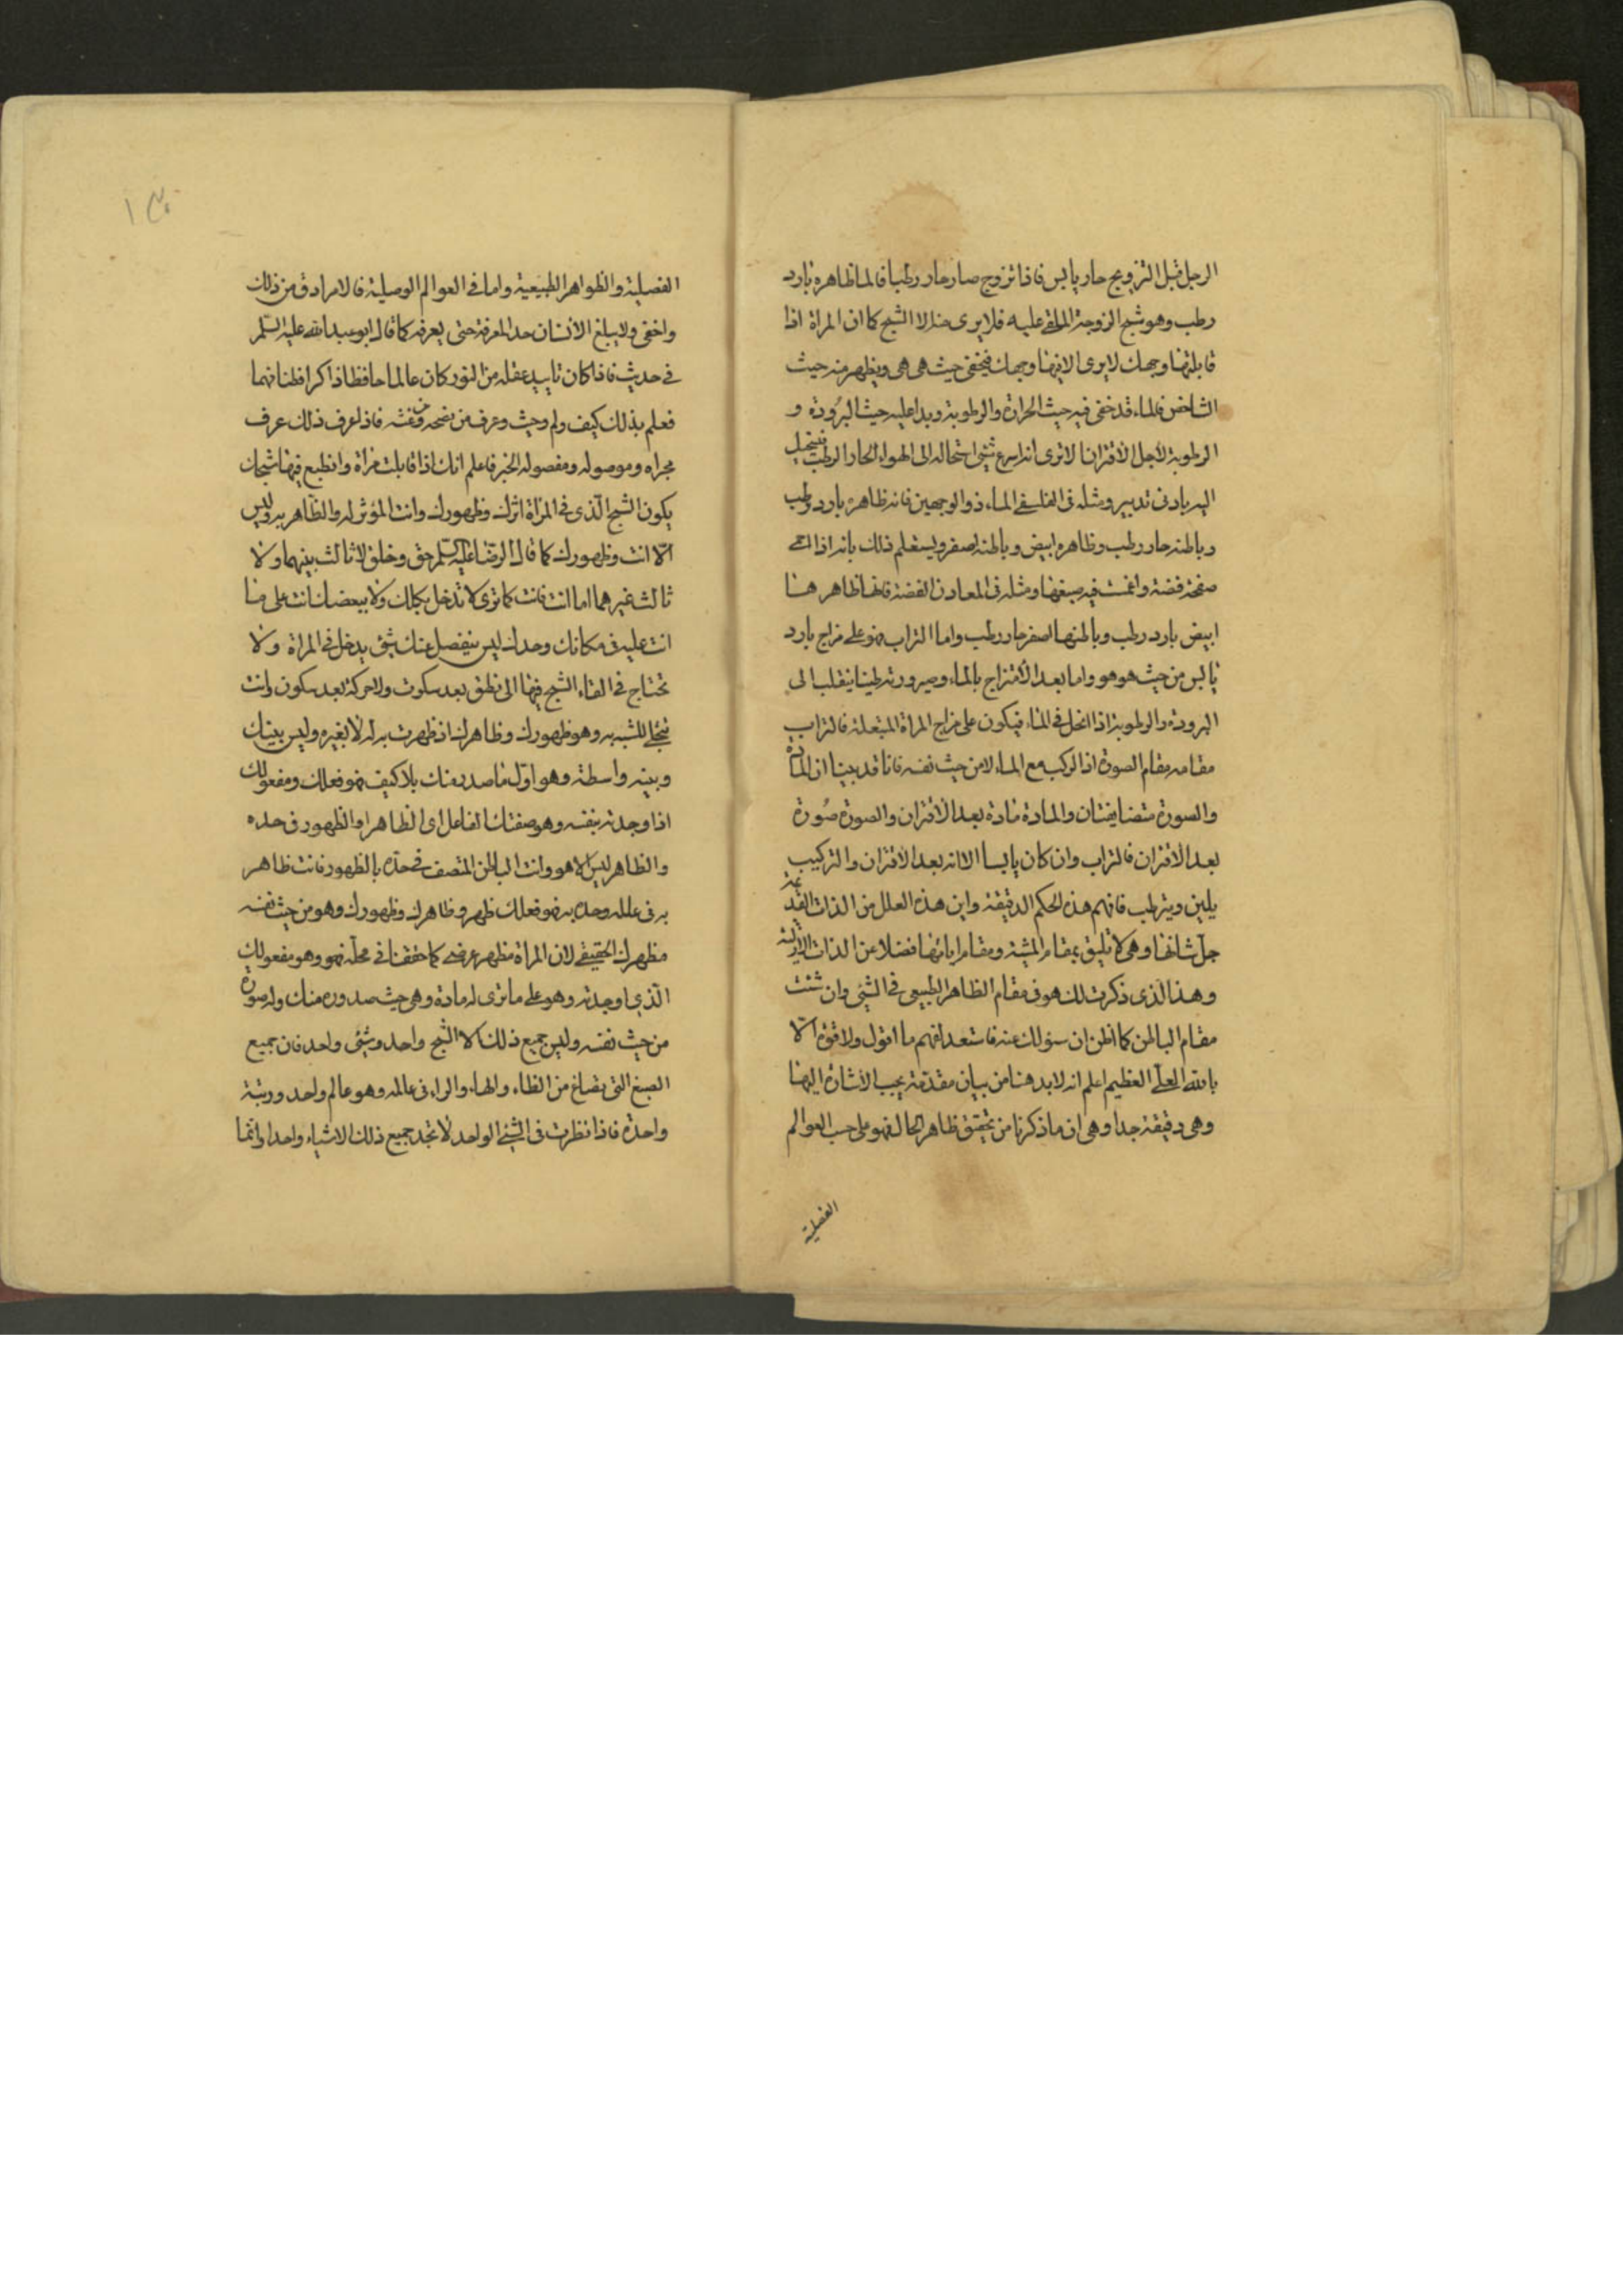 الرجل قبل التزويج حار يابس فاذا تزوج صار حار رطبا فالما ظاهره بارد
رطب وهو شبح الزوجة الملقى عليه فلا يرى منه الا الشبح كما ان المراة اذا
قابلتها وجهك لا يرى الا فيها وجهك فيخفى حيث هى هى ويظهر منه حيث
الشاخص فالماء قد خفى فيه حيث الحرارة والرطوبة وبدا عليه حيث البرودة و
الرطوبة لاجل الاقتران الا ترى انه اسرع شئ استحالة الى الهواء الحار الرطب فيستحيل
اليه بادنى تدبير ومثله فى الفلسفى الماء ذو الوجهين فانه ظاهره بارد رطب
وباطنه حار رطب وظاهره ابيض وباطنه اصفر ويستعلم ذلك بانه اذا احمى
صفحة فضة واغمست فيه صبغها ومثله فى المعادن الفضة فانها ظاهرها
ابيض بارد رطب وباطنها اصفر حار رطب واما التراب فهو على مزاج بارد
يابس من حيث هو هو واما بعد الامتزاج بالماء وصيرورته طينا ينقلب الى
البرودة والرطوبة اذا انحل فى الماء فيكون على مزاج المراة المتبعلة فالتراب
مقامه مقام الصورة اذا الركب مع الماء لا من حيث نفسه فانا قد بينا ان المادة
والصورة متضايفتان والمادة مادة بعد الاقتران والصورة صورة
بعد الاقتران فالتراب وان كان يابسا الا انه بعد الاقتران والتركيب
يلين ويترطب فافهم هذه الحكم الدقيقة واين هذه العلل من الذات القديمة
جل شانها وهى لا تليق بمقام المشية ومقام ايامها فضلا عن الذات الازلية
وهذا الذى ذكرت لك هو فى مقام الظاهر الطبيعى فى الشئ وان شئت
مقام الباطن كما اظن ان سؤلك عنه فاستعد لفهم ما اقول ولا قوة الا
بالله العلى العظيم اعلم انه لابد هنا من بيان مقدمة يجب الاشارة اليها
وهى دقيقة جدا وهى ان ما ذكرنا من تحقيق ظاهر الحال فهو على حسب العوالم
الفصلية
١٣٠
الفصلية والظواهر الطبيعية واما فى العوالم الوصلية فالامر ادق من ذلك
واخفى ولا يبلغ الانسان حد المعرفة حتى يعرفه كما قال ابو عبد الله عليه السلم
فى حديث فاذا كان تاييد عقله من النور كان عالما حافظا ذاكرا فطنا فهما
فعلم بذلك كيف ولم وحيث وعرف من نصحه ومن غشه فاذا عرف ذلك عرف
مجراه وموصوله ومفصوله الخبر فاعلم انك اذا قابلت مراة وانطبع فيها شبحك
يكون الشبح الذى فى المراة اثرك وظهورك وانت المؤثر له والظاهر به وليس
الا انت وظهورك كما قال الرضا عليه السلم حق وخلق لا ثالث بينهما ولا
ثالث غيرهما اما انت فانت كما ترى لا تدخل بكلك ولا ببعضك انت على ما
انت عليه فى مكانك وحدك ليس ينفصل عنك شئ يدخل فى المراة ولا
تحتاج فى القاء الشبح فيها الى نطق بعد سكوت ولا حركة بعد سكون وانت
تتجلى للشبح به وهو ظهورك وظاهرك اذ ظهرت به له لا بغيره وليس بينك
وبينه واسطة وهو اول ما صدر منك بلا كيف فهو فعلك ومفعولك
اذا وجدته بنفسه وهو صفتك الفاعل اى الظاهر او الظهور فى حده
والظاهر ليس الا هو وانت الباطن المتصف فى حده بالظهور فانت ظاهر
به فى علله وحده به فهو فعلك ظهر وظاهرك وظهورك وهو من حيث نفسه
مظهرك الحقيقى لان المراة مظهر عرضى كما حققنا فى محله فهو وهو مفعولك
الذى اوجدته وهو على ما ترى له مادة وهى حيث صدوره منك وله صورة
من حيث نفسه وليس جميع ذلك الا الشبح واحد وشئ واحد فان جميع
الصيغ التى تصاغ من الظاء والهاء والراء فى عالمه وهو عالم واحد ورتبة
واحدة فاذا نظرت فى الشئ الواحد لا تجد جميع ذلك الاشياء واحدا وانما